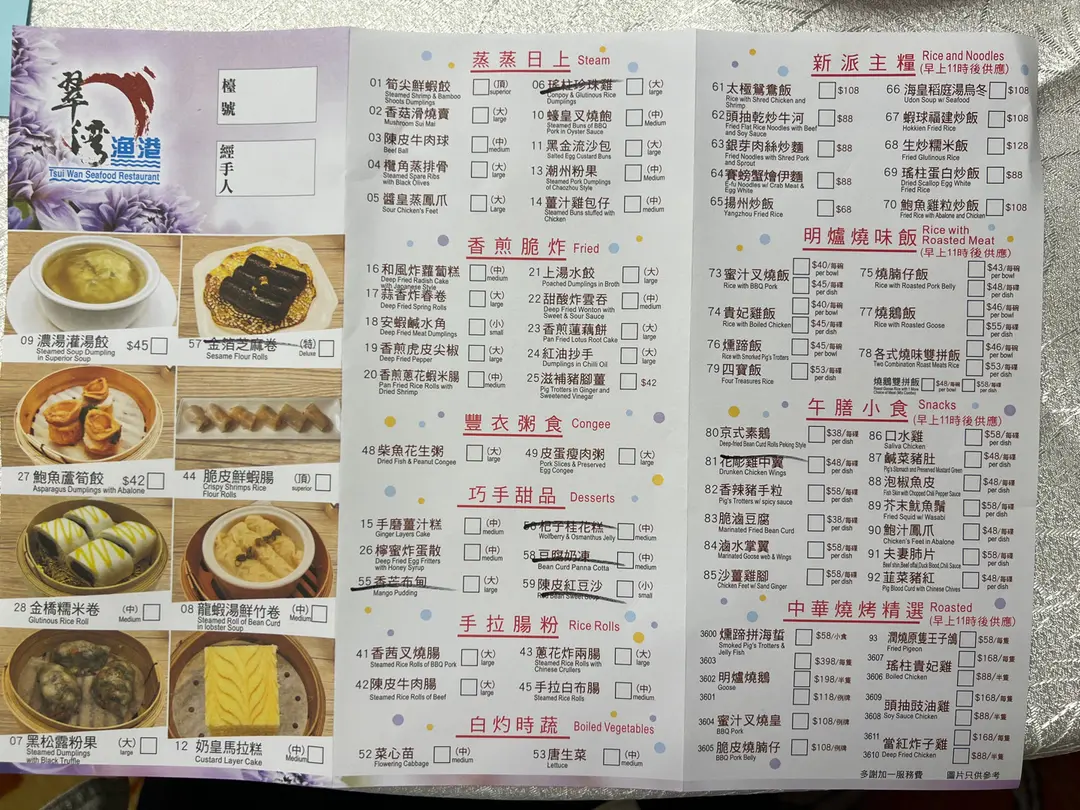 翠灣漁港
Tsui Wan Seafood Restaurant
檯號
經手人
09 濃湯灌湯餃 $45
Steamed Soup Dumpling
in Superior Soup
57 金箔芝麻卷 (特)
Sesame Flour Rolls Deluxe
27 鮑魚蘆筍餃 $42
Asparagus Dumplings with Abalone
44 脆皮鮮蝦腸 (頂)
Crispy Shrimps Rice superior
Flour Rolls
28 金橋糯米卷 (中)
Glutinous Rice Roll Medium
08 龍蝦湯鮮竹卷 (中)
Steamed Roll of Bean Curd Medium
in lobster Soup
07 黑松露粉果 (大)
Steamed Dumplings large
with Black Truffle
12 奶皇馬拉糕 (中)
Custard Layer Cake Medium
蒸蒸日上 Steam
01 筍尖鮮蝦餃 (頂)
Steamed Shrimp & Bamboo superior
Shoots Dumplings
02 香菇滑燒賣 (大)
Mushroom Sui Mai large
03 陳皮牛肉球 (中)
Beef Ball Medium
04 欖角蒸排骨 (大)
Steamed Spare Ribs Large
with Black Olives
05 醬皇蒸鳳爪 (大)
Sour Chicken's Feet Large
06 瑤柱珍珠雞 (大)
Conpoy & Glutinous Rice large
Dumplings
10 蠔皇叉燒飽 (中)
Steamed Buns of BBQ Medium
Pork in Oyster Sauce
11 黑金流沙包 (大)
Salted Egg Custard Buns large
13 潮州粉果 (中)
Steamed Pork Dumplings Medium
of Chaozhou Style
14 薑汁雞包仔 (中)
Steamed Buns stuffed with medium
Chicken
香煎脆炸 Fried
16 和風炸蘿蔔糕 (中)
Deep Fried Radish Cake medium
with Japanese Style
17 蒜香炸春卷 (大)
Deep Fried Spring Rolls large
18 安蝦鹹水角 (小)
Deep Fried Meat Dumplings small
19 香煎虎皮尖椒 (大)
Deep Fried Pepper large
20 香煎蔥花蝦米腸 (中)
Pan Fried Rice Rolls with medium
Dried Shrimp
21 上湯水餃 (大)
Poached Dumplings in Broth large
22 甜酸炸雲吞 (中)
Deep Fried Wonton with medium
Sweet & Sour Sauce
23 香煎蓮藕餅 (大)
Pan Fried Lotus Root Cake large
24 紅油抄手 (大)
Dumplings in Chilli Oil large
25 滋補豬腳薑 $42
Pig Trotters in Ginger and
Sweetened Vinegar
豐衣粥食 Congee
48 柴魚花生粥 (大)
Dried Fish & Peanut Congee large
49 皮蛋瘦肉粥 (大)
Pork Slices & Preserved large
Egg Congee
巧手甜品 Desserts
15 手磨薑汁糕 (中)
Ginger Layers Cake medium
26 檸蜜炸蛋散 (中)
Deep Fried Egg Fritters medium
with Honey Syrup
55 香芒布甸 (大)
Mango Pudding large
56 杞子桂花糕 (中)
Wolfberry & Osmanthus Jelly medium
58 豆腐奶凍 (中)
Bean Curd Panna Cotta medium
59 陳皮紅豆沙 (小)
Red Bean Sweet Soup small
手拉腸粉 Rice Rolls
41 香茜叉燒腸 (大)
Steamed Rice Rolls of BBQ Pork large
42 陳皮牛肉腸 (大)
Steamed Rice Rolls of Beef large
43 蔥花炸兩腸 (大)
Steamed Rice Rolls with large
Chinese Crullers
45 手拉白布腸 (中)
Steamed Rice Rolls medium
白灼時蔬 Boiled Vegetables
52 菜心苗 (中)
Flowering Cabbage medium
53 唐生菜 (中)
Lettuce medium
新派主糧 Rice and Noodles
(早上11時後供應)
61 太極鴛鴦飯 $108
Rice with Shredded Chicken and
Shrimp
62 頭抽乾炒牛河 $88
Fried Flat Rice Noodles with Beef
and Soy Sauce
63 銀芽肉絲炒麵 $88
Fried Noodles with Shred Pork
and Sprout
64 賽螃蟹燴伊麵 $88
E-fu Noodles w/ Crab Meat &
Egg White
65 揚州炒飯 $68
Yangzhou Fried Rice
66 海皇稻庭湯烏冬 $108
Udon Soup w/ Seafood
67 蝦球福建炒飯 $108
Hokkien Fried Rice
68 生炒糯米飯 $128
Fried Glutinous Rice
69 瑤柱蛋白炒飯 $88
Dried Scallop Egg White
Fried Rice
70 鮑魚雞粒炒飯 $108
Fried Rice with Abalone and Chicken
明爐燒味飯 Rice with
Roasted Meat
(早上11時後供應)
73 蜜汁叉燒飯 $40/每碗
Rice with BBQ Pork per bowl
$45/每碟
per dish
74 貴妃雞飯 $40/每碗
Rice with Boiled Chicken per bowl
$45/每碟
per dish
76 燻蹄飯 $45/每碟
Rice with Smoked Pig's Trotters per dish
79 四寶飯 $53/每碟
Four Treasures Rice per dish
75 燒腩仔飯 $43/每碗
Rice with Roasted Pork Belly per bowl
$48/每碟
per dish
77 燒鵝飯 $46/每碗
Rice with Roasted Goose per bowl
$55/每碟
per dish
78 各式燒味雙拼飯 $46/每碗
Two Combination Roast Meats Rice per bowl
$53/每碟
per dish
燒鵝雙拼飯 $48/每碗 $58/每碟
per bowl per dish
午膳小食 Snacks
(早上11時後供應)
80 京式素鵝 $38/每碟
Deep-fried Bean Curd Rolls Peking Style per dish
81 花彫雞中翼 $48/每碟
Drunken Chicken Wings per dish
82 香辣豬手粒 $58/每碟
Pig's Trotters w/ spicy sauce per dish
83 脆滷豆腐 $38/每碟
Marinated Fried Bean Curd per dish
84 滷水掌翼 $58/每碟
Marinated Goose web & Wings per dish
85 沙薑雞腳 $58/每碟
Chicken Feet w/ Sand Ginger per dish
86 口水雞 $58/每碟
Saliva Chicken per dish
87 鹹菜豬肚 $48/每碟
Pig's Stomach and Preserved Mustard Green per dish
88 泡椒魚皮 $58/每碟
Fish Skin with Chopped Chili Pepper Sauce per dish
89 芥末魷魚鬚 $58/每碟
Fried Squid w/ Wasabi per dish
90 鮑汁鳳爪 $48/每碟
Chicken's Feet in Abalone per dish
91 夫妻肺片 $58/每碟
per dish
92 韮菜豬紅 $48/每碟
Pig Blood Curd with Chinese Chives per dish
中華燒烤精選 Roasted
(早上11時後供應)
3600 燻蹄拼海蜇 $58/小食
Smoked Pig's Trotters &
Jelly Fish
3603 $398/每隻
3602 明爐燒鵝 $198/半隻
Goose
3601 $118/例牌
3604 蜜汁叉燒皇 $108/例牌
BBQ Pork
3605 脆皮燒腩仔 $108/例牌
BBQ Pork Belly
93 潤燒原隻王子鴿 $58/每隻
Fried Pigeon
3607 $168/每隻
瑤柱貴妃雞
3606 Boiled Chicken $88/半隻
3609 $168/每隻
頭抽豉油雞
3608 Soy Sauce Chicken $88/半隻
3611 $168/每隻
當紅炸子雞
3610 Deep Fried Chicken $88/半隻
多謝加一服務費 圖片只供參考